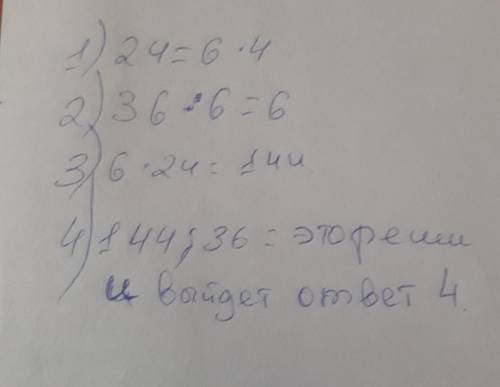 1) 24 = 6 · 4
2) 36 : 6 = 6
3) 6 · 24 = 144
4) 144 : 36 = это реши
и выйдет ответ 4.